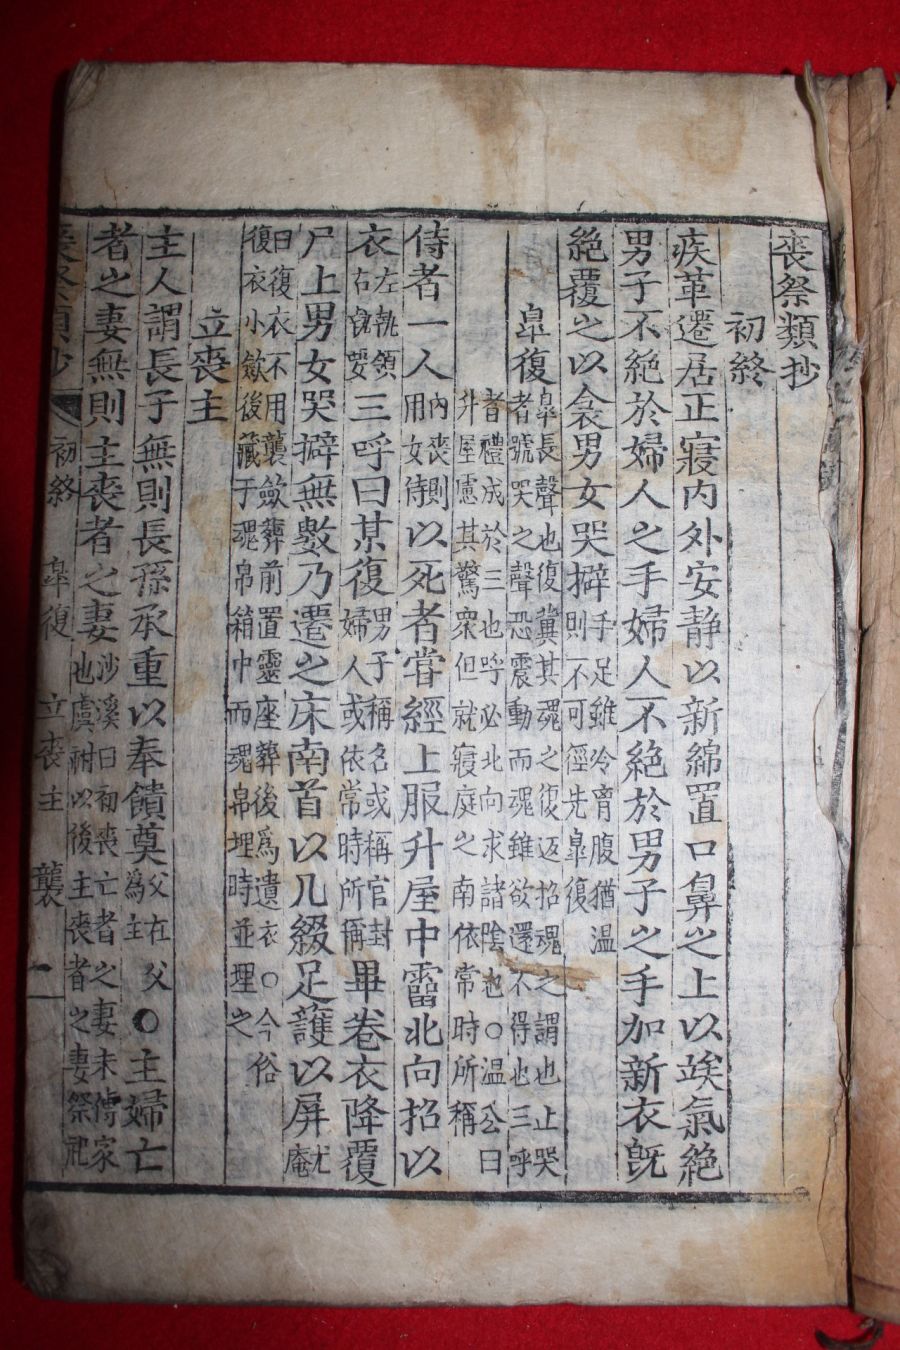 喪祭類抄
初終
疾革遷居正寢內外安靜以新綿置口鼻之上以竢氣絶
男子不絶於婦人之手婦人不絶於男子之手加新衣旣
絶覆之以衾男女哭擗手足雖冷胷腹猶溫
則不可徑先皐復
皐復皐長聲也復冀其魂之復返招魂之謂也止哭
者號哭之聲恐震動而魂雖欲還不得也三呼
者禮成於三也呼必北向求諸陰也○溫公曰
升屋慮其驚衆但就寢庭之南依常時所稱
侍者一人內喪則
用女侍以死者嘗經上服升屋中霤北向招以
衣左執領
右執要三呼曰某復男子稱名或稱官封
婦人或依常時所稱畢卷衣降覆
尸上男女哭擗無數乃遷之床南首以几綴足護以屏尤
庵
曰復衣不用襲斂葬前置靈座葬後爲遺衣○今俗
復衣小斂後藏于魂帛箱中而魂帛埋時並埋之
立喪主
主人謂長子無則長孫承重以奉饋奠父在父
爲主○主婦亡
者之妻無則主喪者之妻沙溪曰初喪亡者之妻未傳家
也虞祔以後主喪者之妻祭祀
喪祭類抄 初終 皐復 立喪主 襲 二